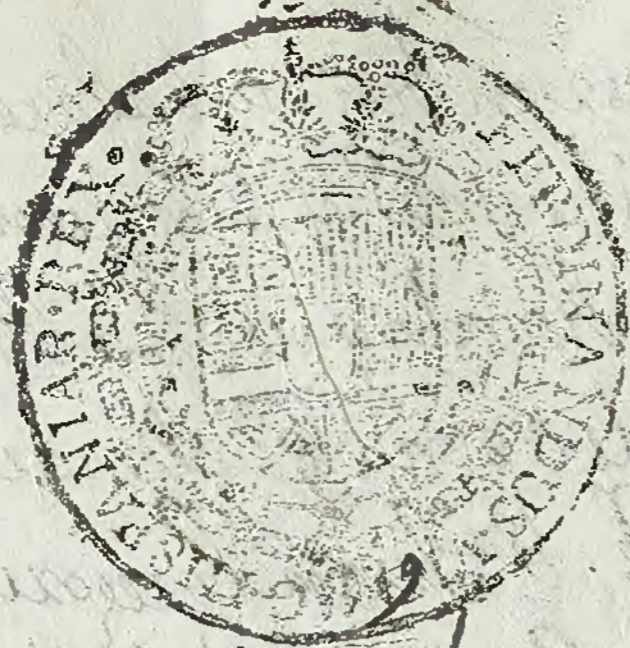 FERDINANDUS VI D G HISPANIAR·REX·